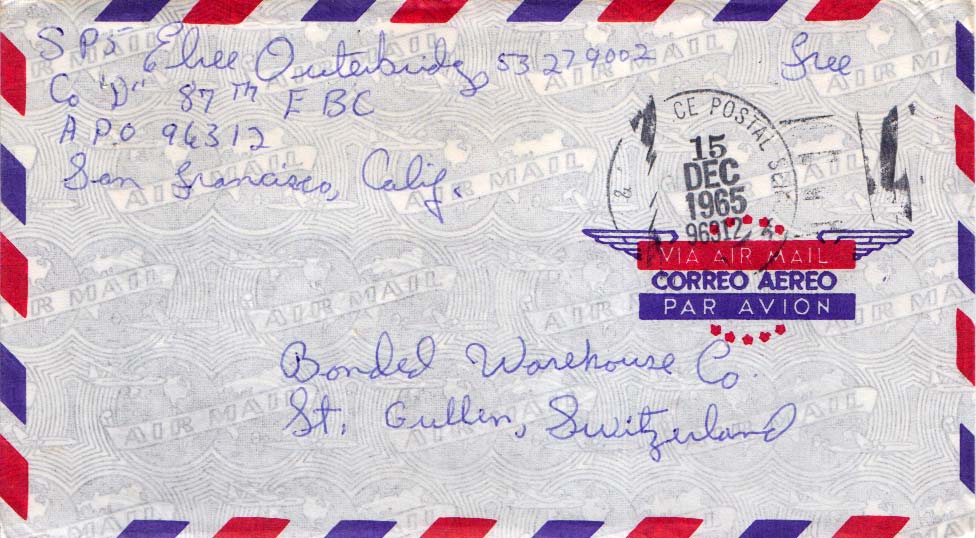 SP5 Elree Outerbridge 53279002
Free
Co "D" 87TH EBC
APO 96312
San Francisco, Calif.
CE POSTAL SER
15
DEC
1965
96312
VIA AIR MAIL
CORREO AEREO
PAR AVION
Bonded Warehouse Co.
St. Gullen, Switzerland
AIR MAIL